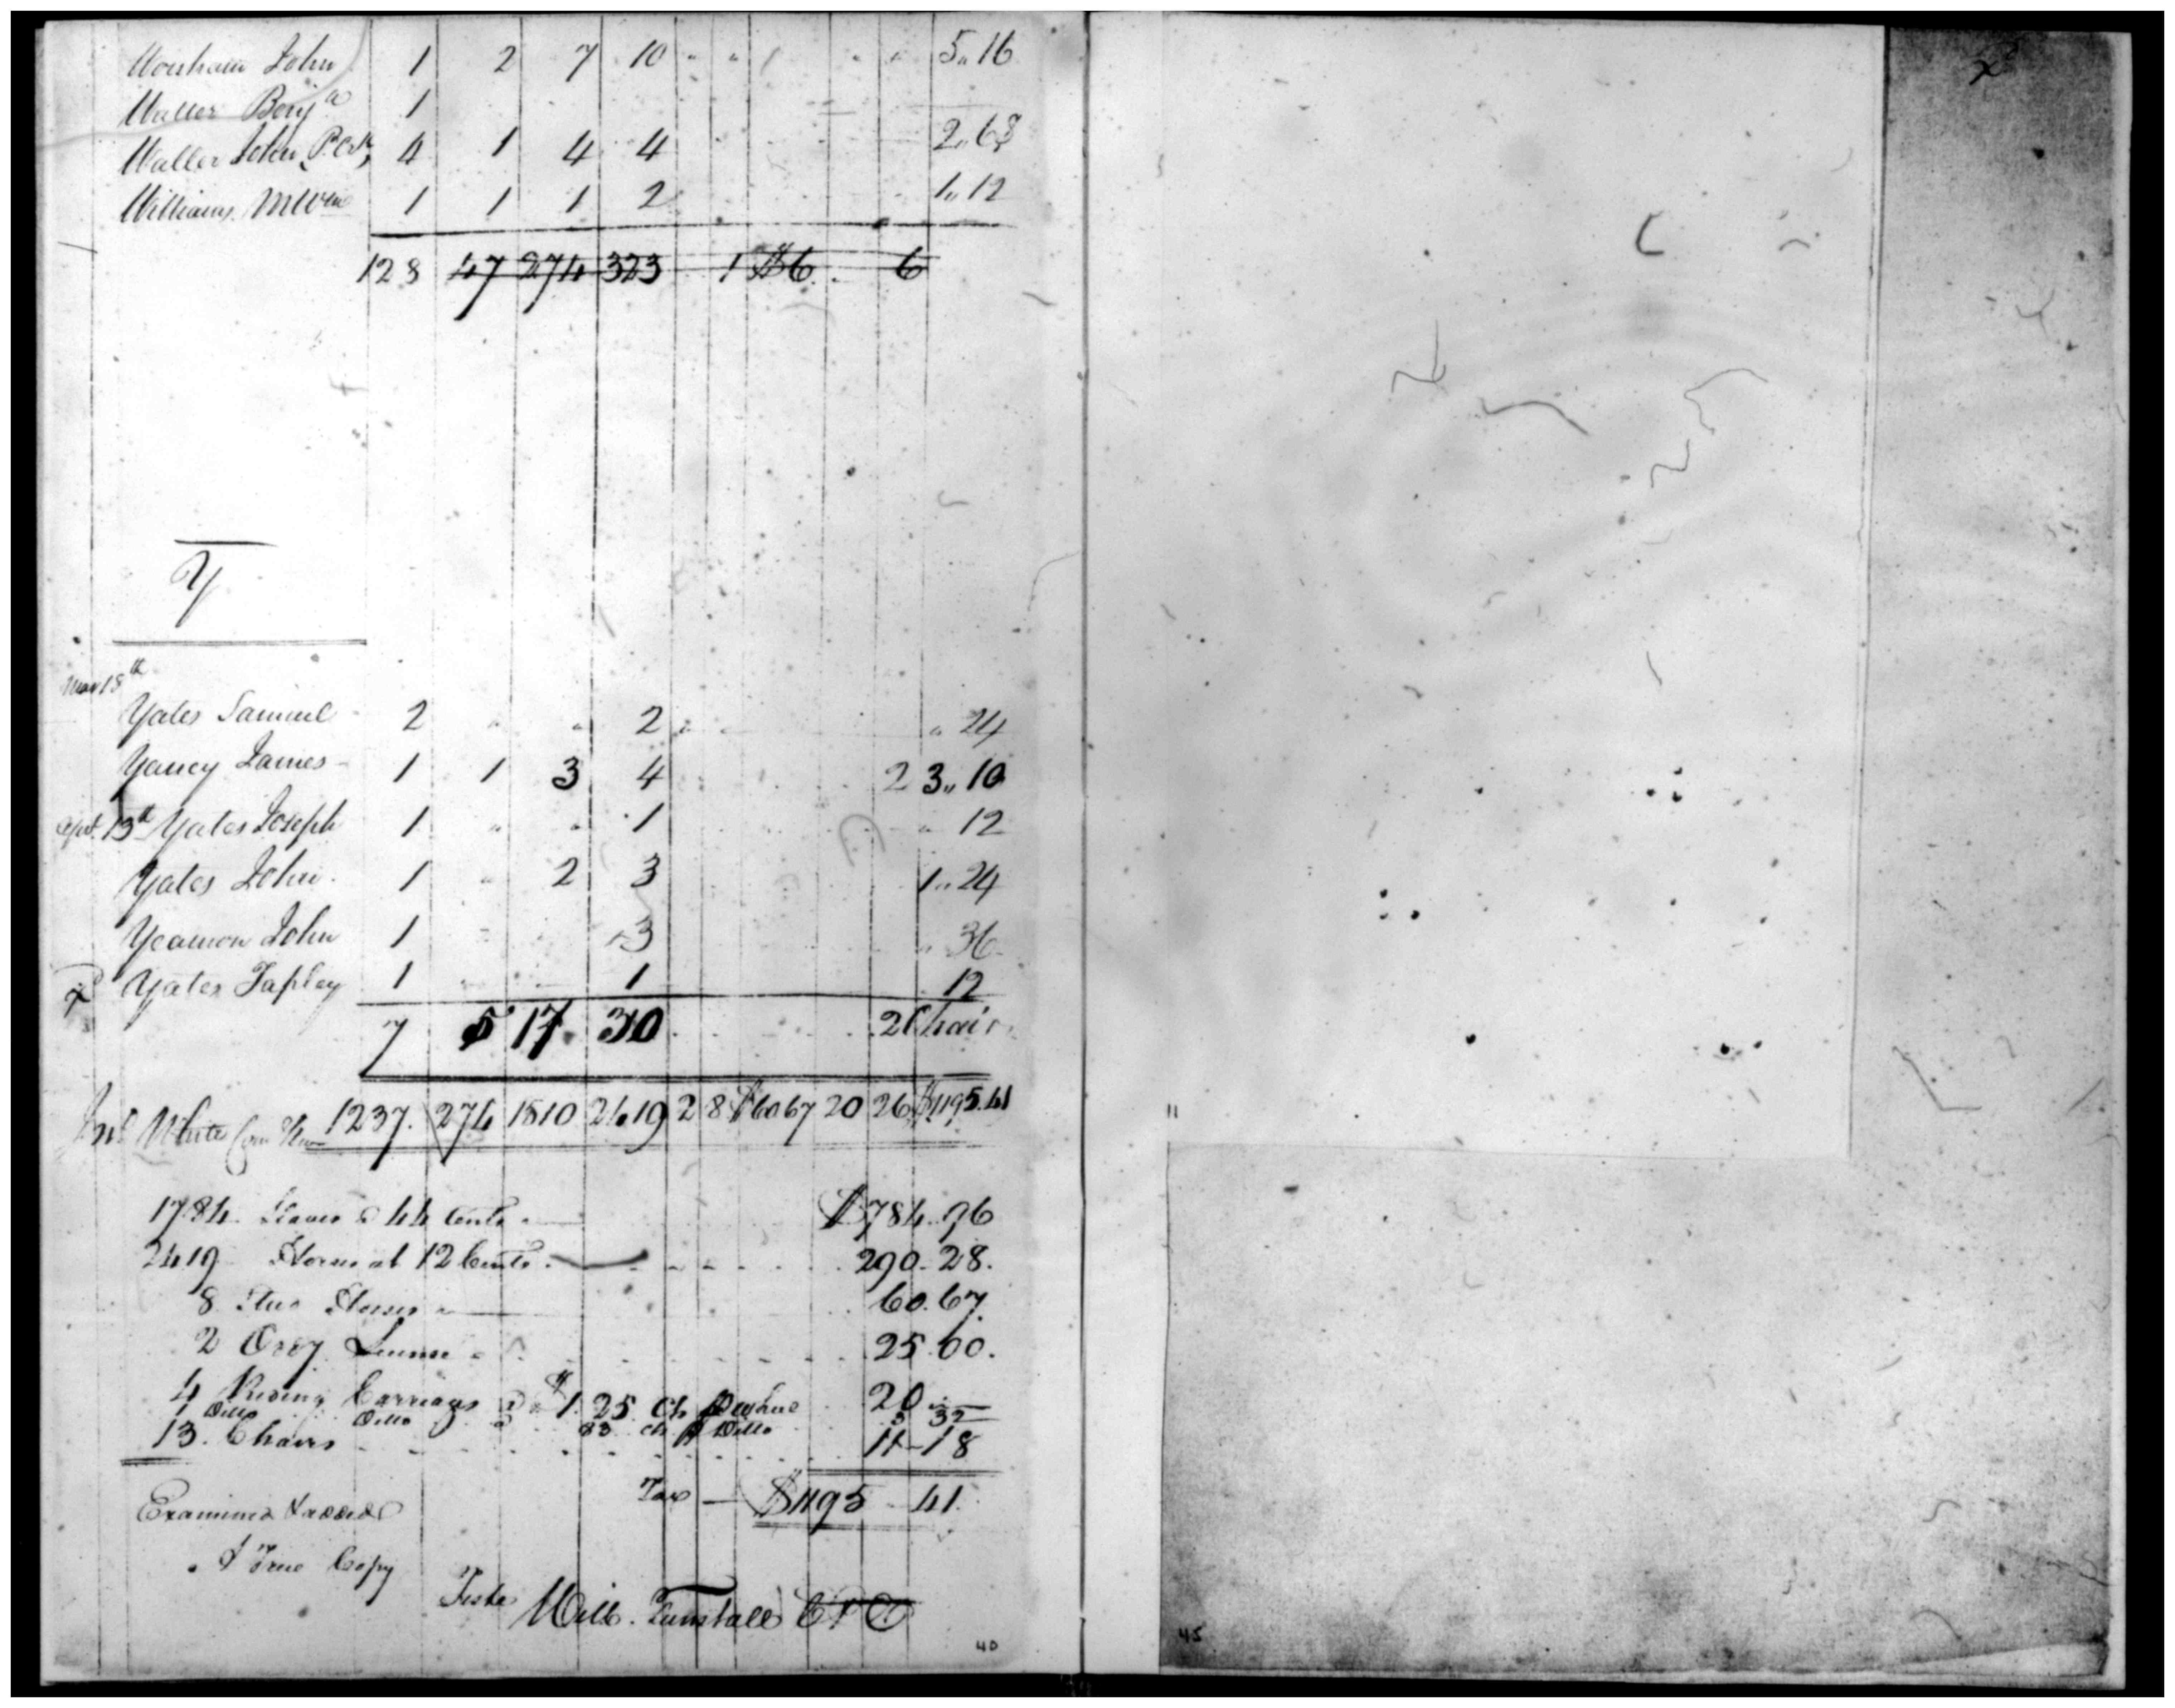 Worsham John 1 2 7 10 " " 5,,16
Waller Benj.a 1
Waller John 4 1 4 4 2,,68
Williams Mwm 1 1 1 2 1,,12
128 47 274 323 1 $6 6
Y
Mar 18th
Yates Samuel 2 " " 2 " 24
Yancy James 1 1 3 4 2 3,,10
Apl. 13th Yates Joseph 1 " " 1 " 12
Yates John 1 " 2 3 1,,24
Yeamon John 1 3 " 36
Yates Tapley 1 1 12
7 5 17 30 2 Chair
Jno White Com 1237. 274 1510 2419 2 8 $60 67 20 26 $1195.41
1784 Slaves a 44 Cents $784..96
2419 Horses at 12 Cents 290.28.
8 Stud Horses 60.67
2 Ordy License 25.00.
4 Riding Carriages a $1.25 Ch p wheel 20..
1 Ditto Ditto a 83 ch p Ditto 3 32
13. Chairs 11-18
Tax — $1195 41.
Examined
A True Copy
Teste Will. Tunstall CPC
40
45